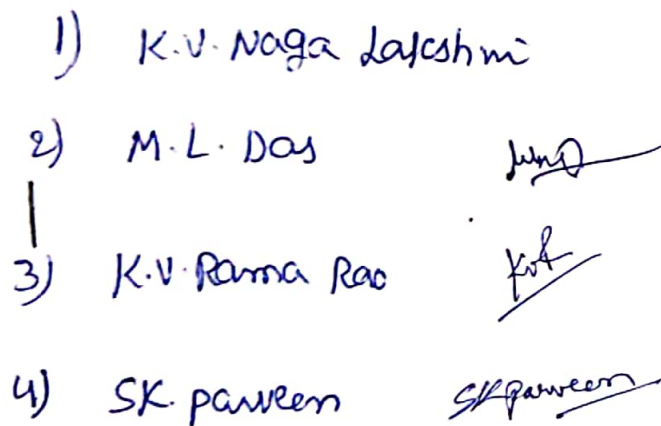 1) K.V. Naga Lakshmi
2) M.L. Das
3) K.V. Rama Rao
4) SK. parveen SK parveen